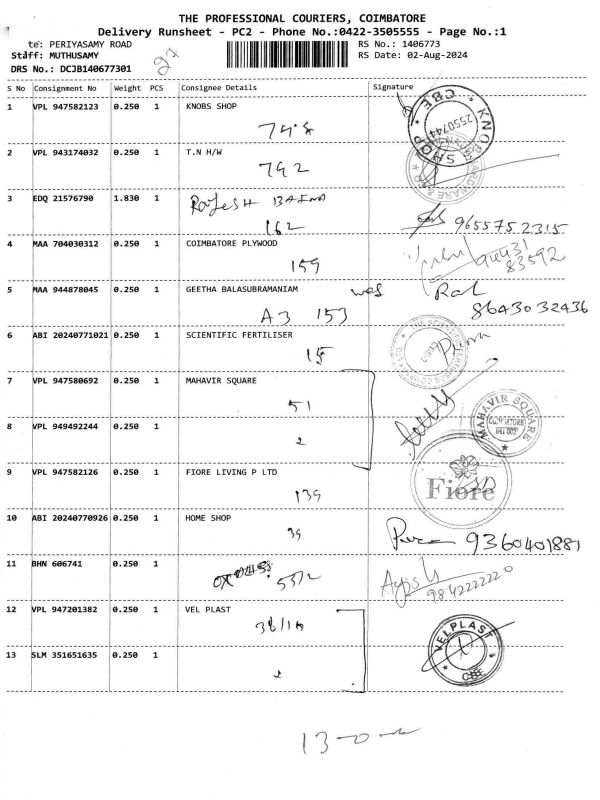 THE PROFESSIONAL COURIERS, COIMBATORE
Delivery Runsheet - PC2 - Phone No.:0422-3505555 - Page No.:1
te: PERIYASAMY ROAD RS No.: 1406773
Staff: MUTHUSAMY RS Date: 02-Aug-2024
DRS No.: DCJB140677301
S No Consignment No Weight PCS Consignee Details Signature
1 VPL 947582123 0.250 1 KNOBS SHOP
KNOBS SHOP CBE 2550744
2 VPL 943174032 0.250 1 T.N H/W
792
3 EDQ 21576790 1.830 1 Rajesh
162 9655752315
4 MAA 704030312 0.250 1 COIMBATORE PLYWOOD
159 83592
5 MAA 944878045 0.250 1 GEETHA BALASUBRAMANIAM
A3 153 8643032436
6 ABI 20240771021 0.250 1 SCIENTIFIC FERTILISER
15
7 VPL 947580692 0.250 1 MAHAVIR SQUARE
51
MAHAVIR SQUARE COIMBATORE
8 VPL 949492244 0.250 1
2
9 VPL 947582126 0.250 1 FIORE LIVING P LTD
139 Fiore
10 ABI 20240770926 0.250 1 HOME SHOP
39 9360401881
11 BHN 606741 0.250 1
5312 9842222220
12 VPL 947201382 0.250 1 VEL PLAST
VELPLAST CBE
13 SLM 351651635 0.250 1
2